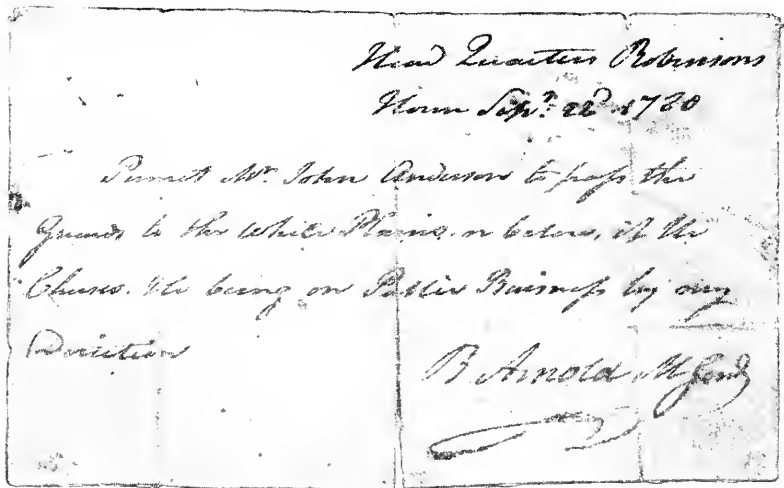 Head Quarters Robinsons
House Sepr. 22d 1780
Permit Mr. John Anderson to pass the
Guards to the White Plains, or below, if He
Chuses. He being on Public Buisness by my
Direction
B Arnold M Genl